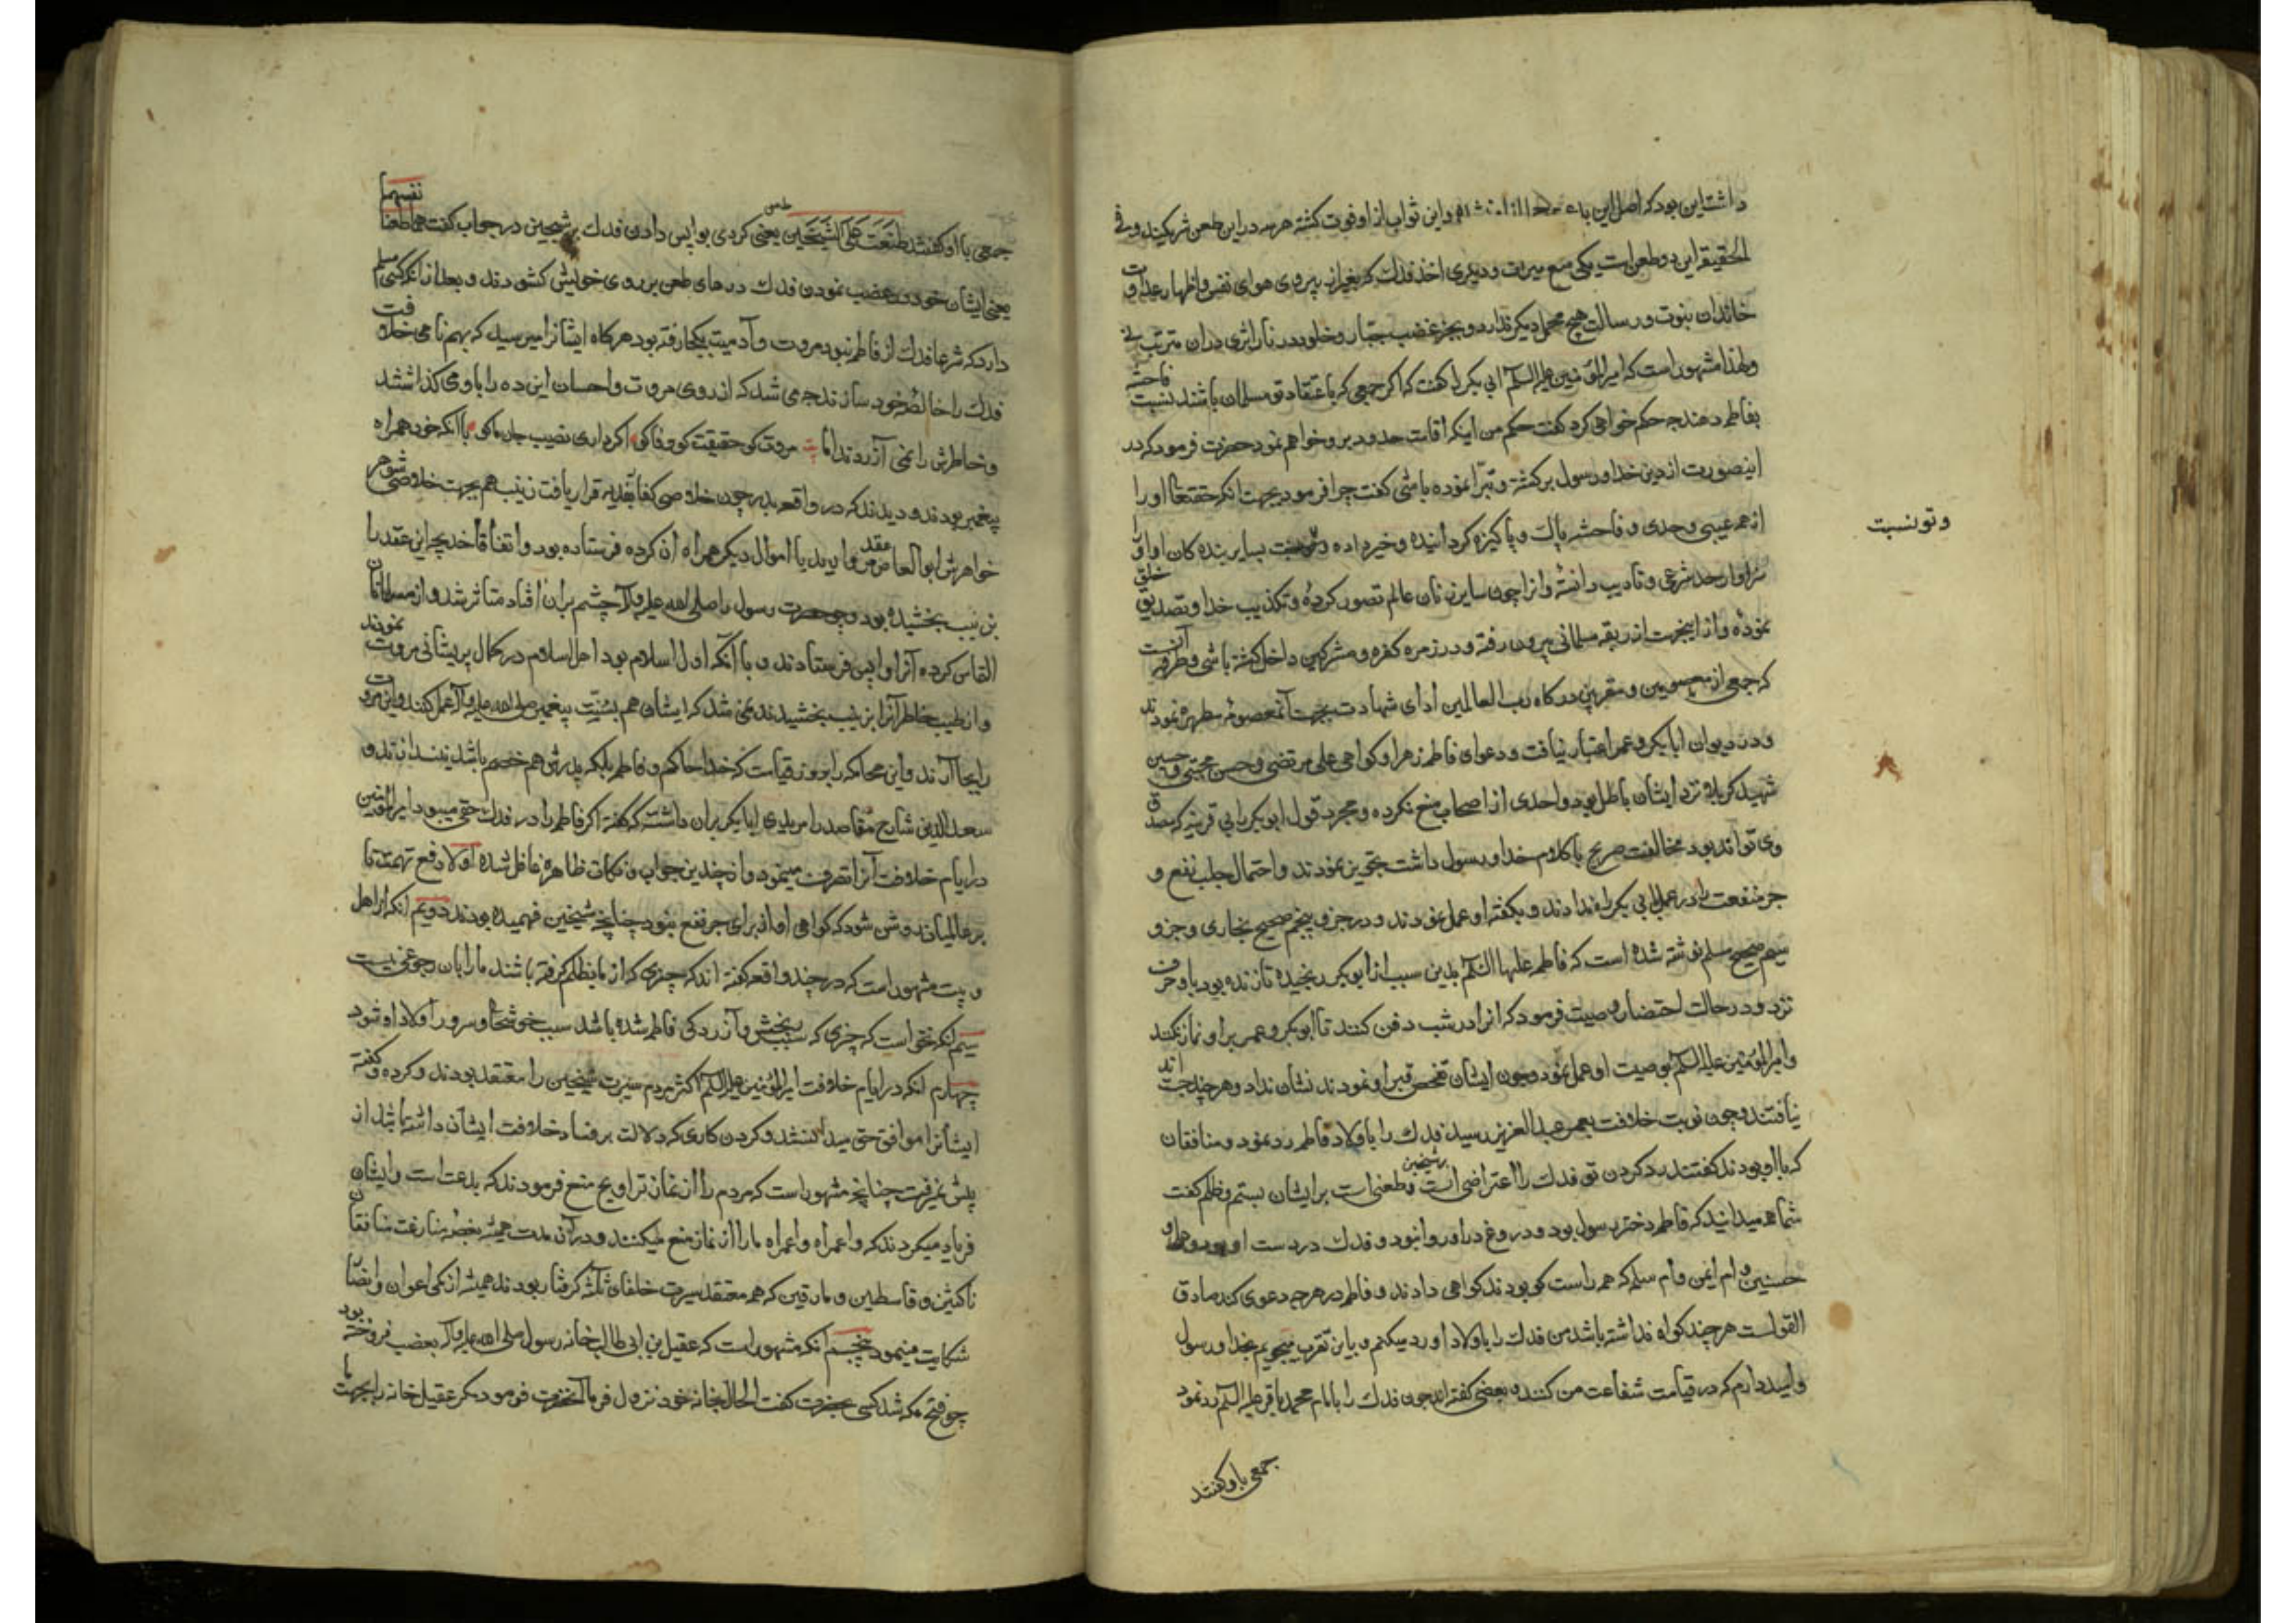 داشت این بود که اصل این و این ثواب از او فوت گشته هر سه در این طعن شریکند و فی
الحقیقة این دو طعن است یکی منع میراث و دیگری اخذ فدک که بغیر از پیروی هوای نفس و اظهار عداوت
خاندان نبوت و رسالت هیچ محمل دیگر ندارد و بجز غضب جبار و خلود در نار اثری در آن مترتب نی
ولهذا مشهور است که امیر المؤمنین علیه السلم ابی بکر را گفت که اگر جمعی که باعتقاد تو مسلمان باشند نسبت فاحشه
بفاطمه دهند چه حکم خواهی کرد گفت حکم من اینکه اقامت حدود برو خواهم نمود حضرت فرمود که در
اینصورت از دین خدا و رسول برگشته و تبرا نموده باشی گفت چرا فرمود بجهت آنکه حقتعالی او را
از همه عیبی و حدی و فاحشه پاک و پاکیزه گردانیده و خبر داده و تو نسبت بسایر بنده کان او او را
سزاوار حد شرعی و تادیب دانسته و او را چون سایر زنان عالم تصور کرده و تکذیب خدا و تصدیق خلق
نموده و از اینجهت از ربقه مسلمانی بیرون رفته و در زمره کفره و مشرکین داخل گشته باشی و طرفه آنست
که جمعی از معصومین و مقربین درگاه رب العالمین ادای شهادت بجهت آنمعصومه مطهره نمودند
و در دیوان ابابکر و عمر اعتبار نیافت و دعوای فاطمه زهرا و گواهی علی مرتضی و حسن مجتبی و حسین
شهید کربلا نزد ایشان باطل بود و احدی از اصحاب منع نکرده و مجرد قول ابو بکر را بی قرینه که مصدق
وی تواند بود مخالفت صریح با کلام خدا و رسول داشت تجویز نمودند و احتمال جلب نفع و
جر منفعت را در عمل ابی بکر راه ندادند و بگفته او عمل نمودند و در جزو پنجم صحیح بخاری و جزو
سیم صحیح مسلم نوشته شده است که فاطمه علیها السلم بدین سبب از ابو بکر رنجیده تا زنده بود با او حرف
نزد و در حالت احتضار وصیت فرمود که او را در شب دفن کنند تا ابو بکر و عمر بر او نماز نکنند
و امیر المؤمنین علیه السلم بوصیت او عمل نمود و چون ایشان تفحص قبر او نمودند نشان نداد و هر چند جسته اند
نیافتند و چون نوبت خلافت بعمر عبد العزیز رسید فدک را باولاد فاطمه رد نمود و منافقان
که با او بودند گفتند رد کردن تو فدک را اعتراضی است بر شیخین و طعنی است بر ایشان بستم و ظلم گفت
شما هم میدانید که فاطمه دختر رسول بود و دروغ در او روا نبود و فدک در دست او بود و علی و
حسنین و ام ایمن و ام سلمه که همه راست گو بودند گواهی دادند و فاطمه در هر چه دعوی کند صادق
القول است هر چند گواه نداشته باشد من فدک را باولاد او رد میکنم و باین تقرب میجویم بخدا و رسول
و امید دارم که در قیامت شفاعت من کنند و بعضی گفته اند چون فدک را بامام محمد باقر علیه السلم رد نمود
جمعی با او گفتند
و تو نسبت
جمعی با او گفتند طعنت علی الشیخین یعنی طعن کردی بواپس دادن فدک بر شیخین در جواب گفت هما طعنا نفسهما
یعنی ایشان خود در غضب نمودن فدک درهای طعن بر روی خویش گشودند و بعد از آنکه کسی مسلم
دارد که شرعا فدک از فاطمه نبود مروت و آدمیت بکجا رفته بود هر گاه ایشانرا میرسید که بهم نامی خلافت
فدک را خالصه خود سازند چه می شد که از روی مروت و احسان این ده را باو می گذاشتند
و خاطرش را نمی آزردند اما مروت کو حقیقت کو وفا کو اگر داری نصیب جان ما کو با آنکه خود همراه
پیغمبر بودند و دیدند که در واقعه بدر چون خلاصی کفار بفدیه قرار یافت زینب هم بجهت خلاصی شوهر
خواهرش ابو العاص عقد مروارید با اموال دیگر همراه آن کرده فرستاده بود و اتفاقا خدیجه این عقد را
بزینب بخشیده بود و چون حضرت رسول را صلی الله علیه و آله چشم بر آن افتاد متاثر شد و از مسلمانان
التماس کرده آنرا واپس فرستادند و با آنکه اول اسلام بود اهل اسلام در کمال پریشانی مروت نمودند
و از طیب خاطر آنرا بزینب بخشیدند نمی شد که ایشان هم بسنت پیغمبر صلی الله علیه و آله عمل کنند و این مروت
را بجا آرند و این محاکمه را بروز قیامت که خدا حاکم و فاطمه بلکه پدرش هم خصم باشد نیندازند و
سعد الدین شارح مقاصد را مریدی ابابکر بران داشته که گفته اگر فاطمه را در فدک حقی میبود امیر المؤمنین
در ایام خلافت آنرا تصرف مینمود و از چندین جواب و نکات ظاهره غافل شده اولا دفع تهمت تا
بر عالمیان روشن شود که گواهی او از برای جر نفع نبود چنانچه شیخین فهمیده بودند دویم آنکه از اهل
بیت مشهور است که در چند واقعه گفته اند که چیزی که از ما بظلم گرفته باشند ما را بآن رجوعی نیست
سیم آنکه نخواست که چیزی که سبب رنجش و آزردگی فاطمه شده باشد سبب خوشحالی و سرور اولاد او شود
چهارم آنکه در ایام خلافت امیر المؤمنین علیه السلم اکثر مردم سیرت شیخین را معتقد بودند و کرده و گفته
ایشانرا موافق حق میدانستند و کردن کاری که دلالت بر فساد خلافت ایشان داشته باشد از
پیش نمیرفت چنانچه مشهور است که مردم را از نماز تراویح منع فرمودند که بدعت است و ایشان
فریاد میکردند که وا عمراه وا عمراه ما را از نماز منع میکنند و در آن مدت همیشه بمنازعت منافقان
ناکثین و قاسطین و مارقین که همه معتقد سیرت خلفای ثلثه گرفتار بودند همیشه از کمی اعوان و انصار
شکایت مینمود پنجم آنکه مشهور است که عقیل بن ابی طالب خانه رسول صلی الله علیه و آله بغضب فروخته بود
چو فتح مکه شد کسی بحضرت گفت الحال بخانه خود نزول فرما آنحضرت فرمود مگر عقیل خانه را بجهت ما